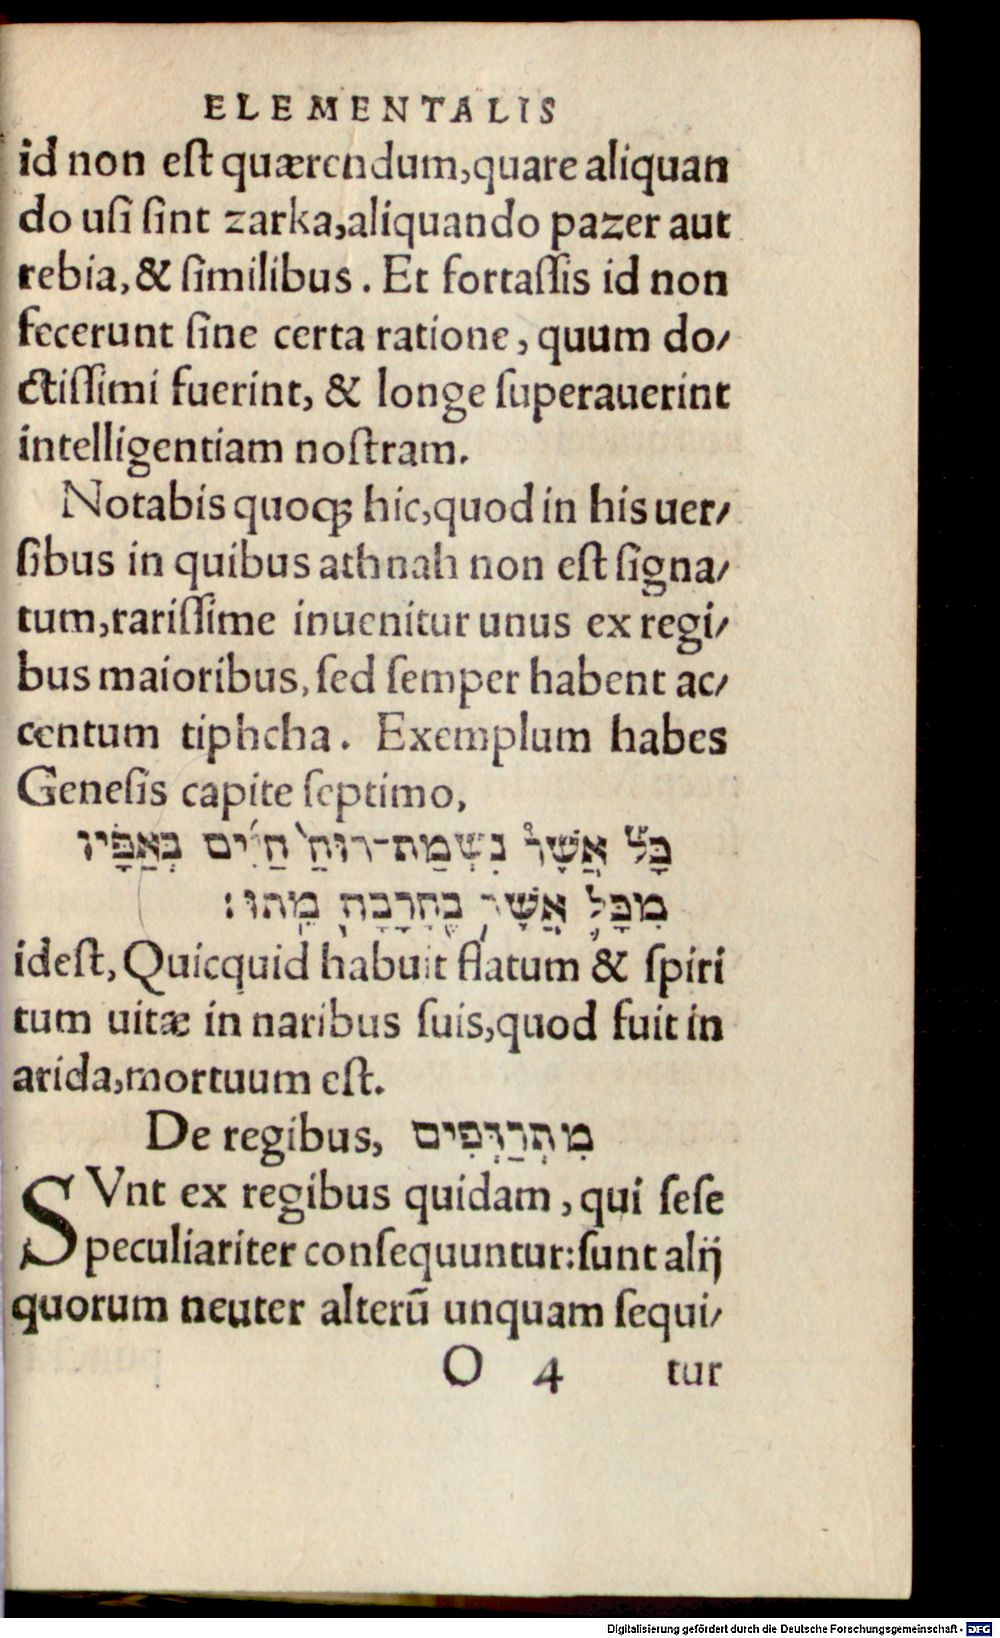 ELEMENTALIS
id non eſt quærendum,quare aliquan
do uſi ſint zarka,aliquando pazer aut
rebia,& ſimilibus. Et fortaſſis id non
fecerunt ſine certa ratione, quum do/
ctiſſimi fuerint, & longe ſuperauerint
intelligentiam noſtram.
Notabis quoqꝫ hic,quod in his uer/
ſibus in quibus athnah non eſt ſigna/
tum,rariſſime inuenitur unus ex regi/
bus maioribus, ſed ſemper habent ac/
centum tiphcha. Exemplum habes
Geneſis capite ſeptimo,
כָּל אֲשֶׁר נִשְׁמַת־רוּחַ חַיִּים בְּאַפָּיו
מִכָּל אֲשֶׁר בֶּחָרָבָה מֵתוּ׃
ideſt, Quicquid habuit flatum & ſpiri
tum uitæ in naribus ſuis,quod fuit in
arida,mortuum eſt.
De regibus, מִתְרַדְּפִים
SVnt ex regibus quidam, qui ſeſe
peculiariter conſequuntur:ſunt alij
quorum neuter alterū unquam ſequi/
O 4 tur
Digitalisierung gefördert durch die Deutsche Forschungsgemeinschaft - DFG